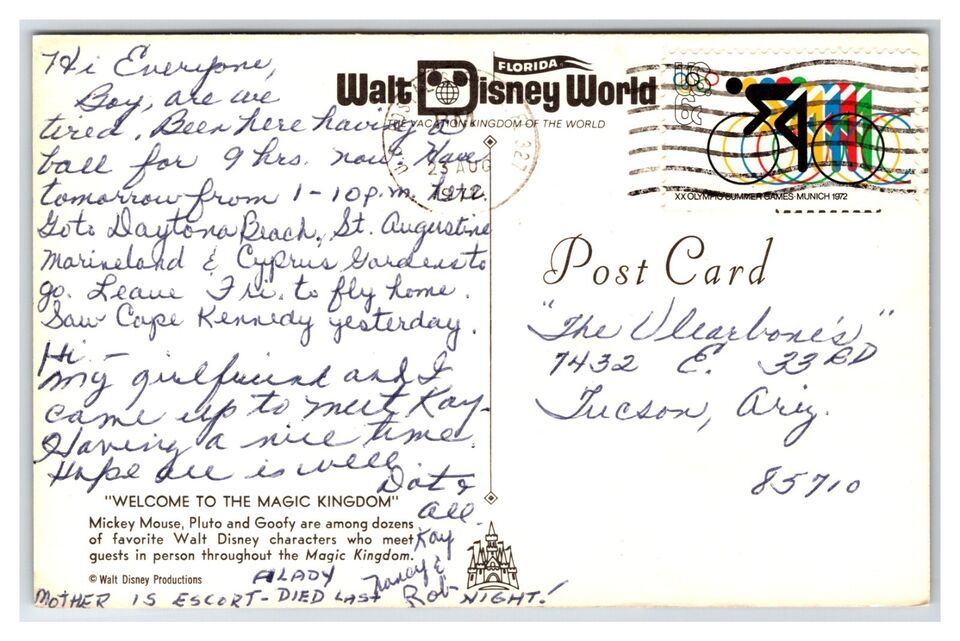 Hi Everyone,
Boy, are we
tired. Been here having a
ball for 9 hrs. now. Have
tomorrow from 1-10 p.m. here.
Goto Daytona Beach, St. Augustine
Marineland & Cyprus Gardens to
go. Leave Fri. to fly home.
Saw Cape Kennedy yesterday.
Hi -
my girlfriend and I
came up to meet Kay.
Having a nice time.
Hope all is well
Dot &
all.
Kay
Nancy &
Rob
"WELCOME TO THE MAGIC KINGDOM"
Mickey Mouse, Pluto and Goofy are among dozens
of favorite Walt Disney characters who meet
guests in person throughout the Magic Kingdom.
© Walt Disney Productions
A LADY
MOTHER IS ESCORT - DIED LAST NIGHT!
FLORIDA
Walt Disney World
THE VACATION KINGDOM OF THE WORLD
327
PM
23 AUG
1972
US 6c
XX OLYMPIC SUMMER GAMES · MUNICH 1972
Post Card
"The Vlearbone's"
7432 E. 33RD
Tucson, Ariz.
85710